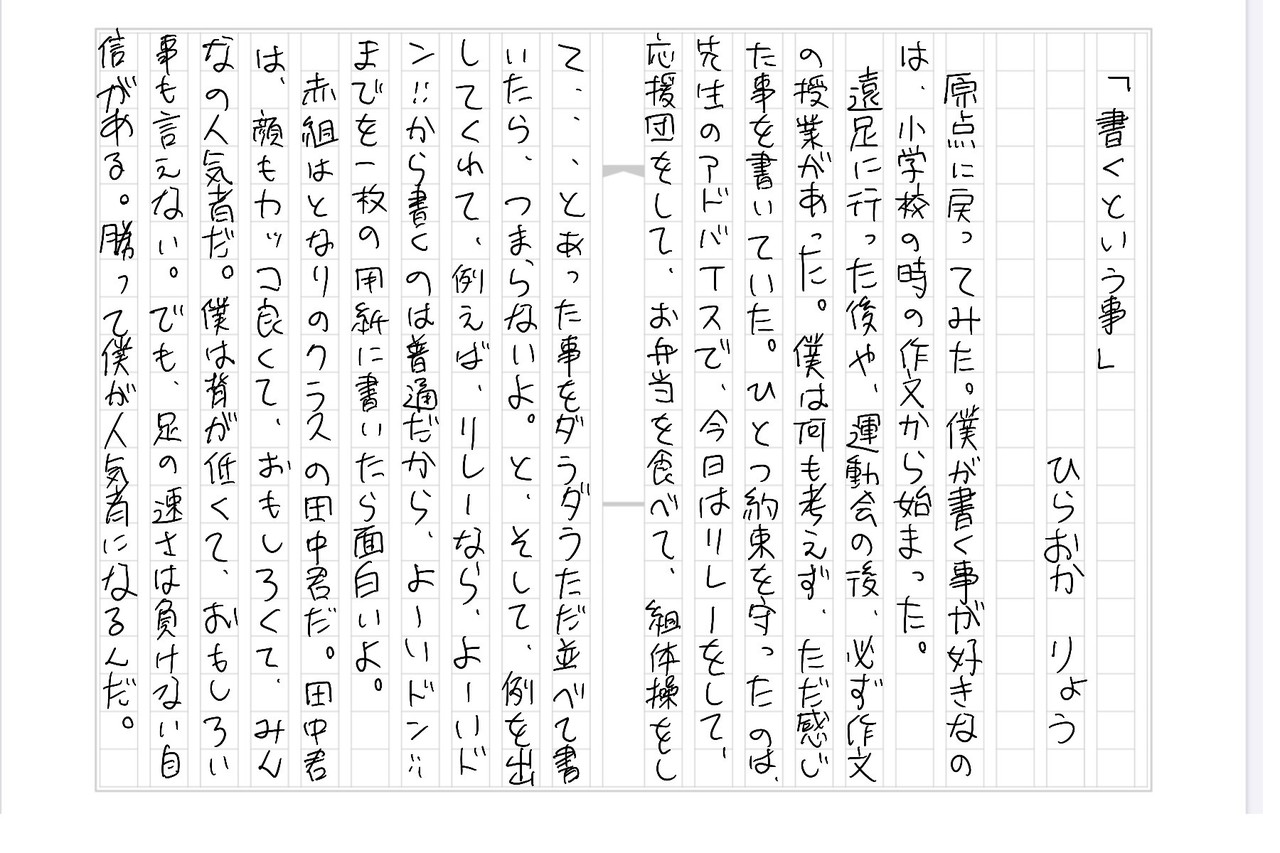 「書くという事」
ひらおか　りょう
原点に戻ってみた。僕が書く事が好きなの
は、小学校の時の作文から始まった。
遠足に行った後や、運動会の後、必ず作文
の授業があった。僕は何も考えず、ただ感じ
た事を書いていた。ひとつ約束を守ったのは、
先生のアドバイスで、今日はリレーをして、
応援団をして、お弁当を食べて、組体操をし
て、、、とあった事をダラダラただ並べて書
いたら、つまらないよ。と、そして、例を出
してくれて、例えば、リレーなら、よーいド
ン!!から書くのは普通だから、よーいドン!!
までを一枚の用紙に書いたら面白いよ。
赤組はとなりのクラスの田中君だ。田中君
は、顔もカッコ良くて、おもしろくて、みん
なの人気者だ。僕は背が低くて、おもしろい
事も言えない。でも、足の速さは負けない自
信がある。勝って僕が人気者になるんだ。